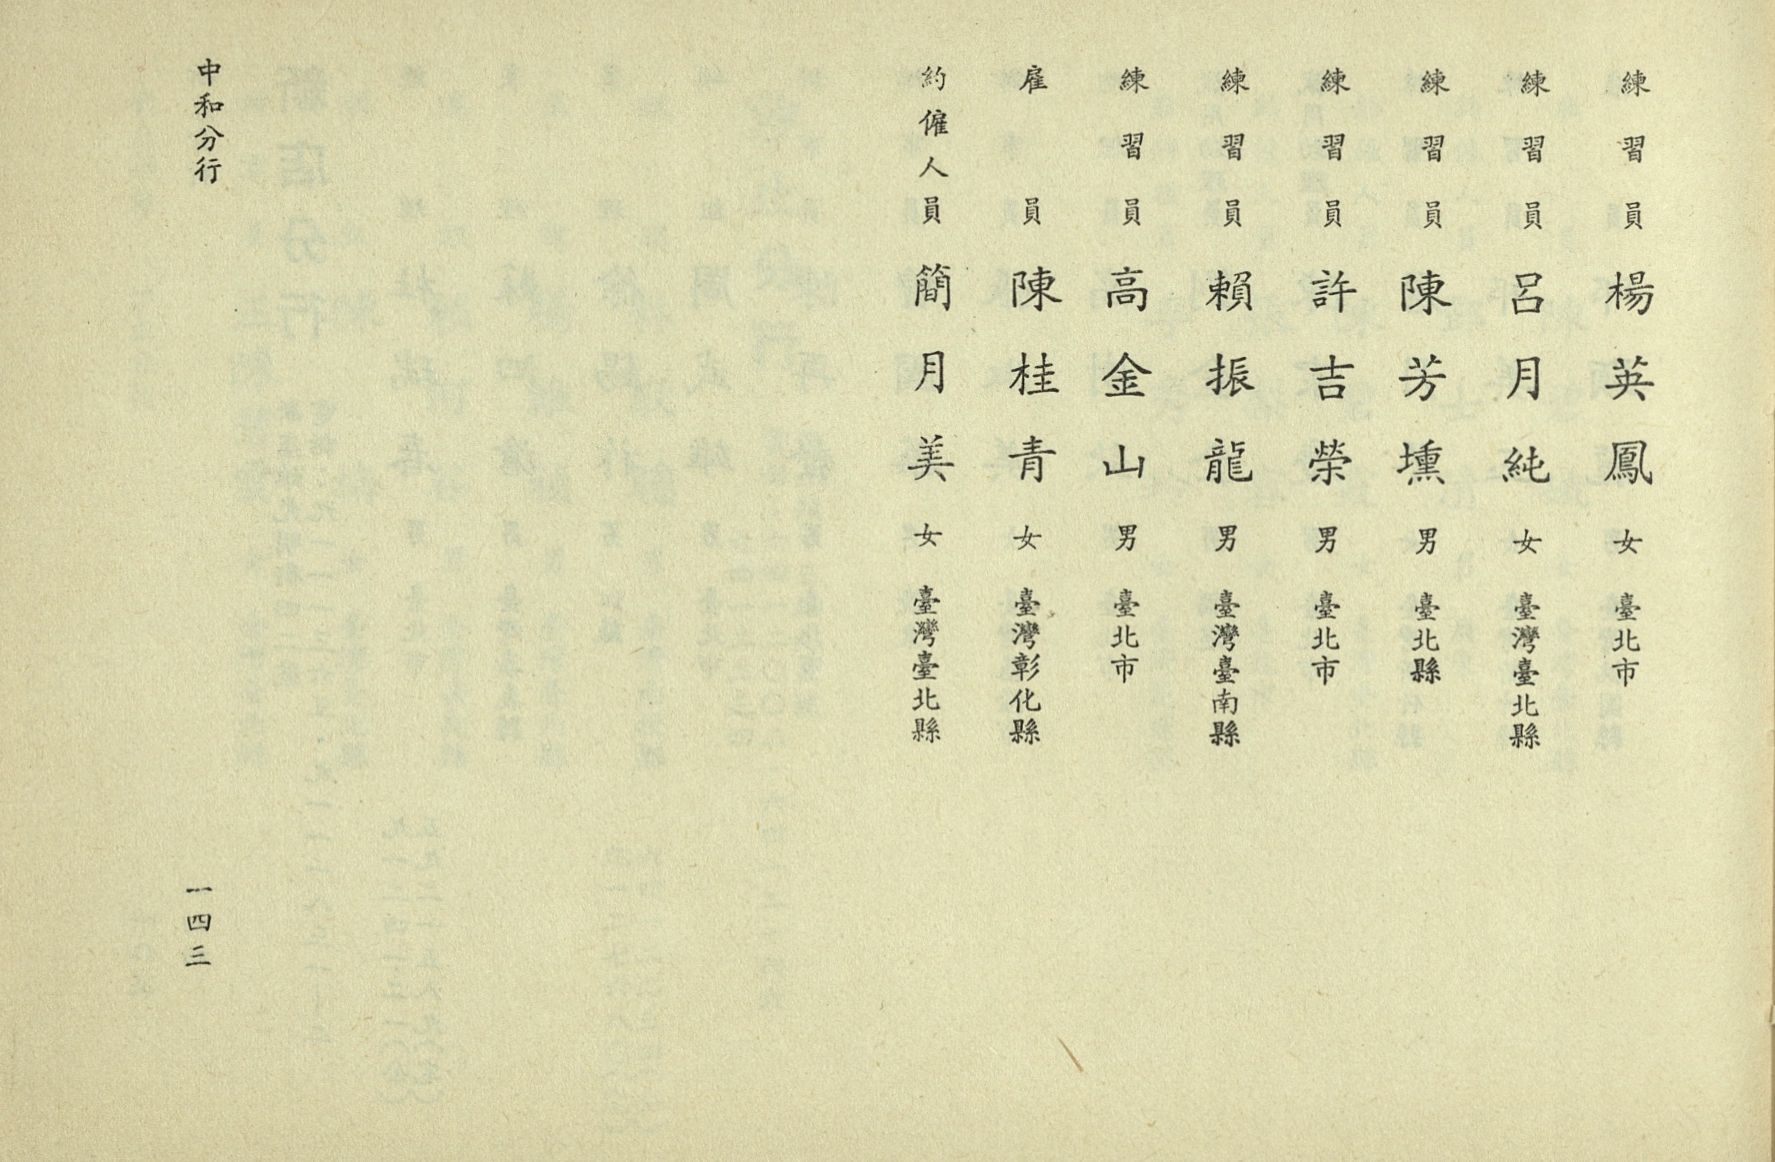 練習員 楊英鳳 女 臺北市
練習員 呂月純 女 臺灣臺北縣
練習員 陳芳壎 男 臺北縣
練習員 許吉榮 男 臺北市
練習員 賴振龍 男 臺灣臺南縣
練習員 高金山 男 臺北市
雇員 陳桂青 女 臺灣彰化縣
約僱人員 簡月美 女 臺灣臺北縣
中和分行
一四三